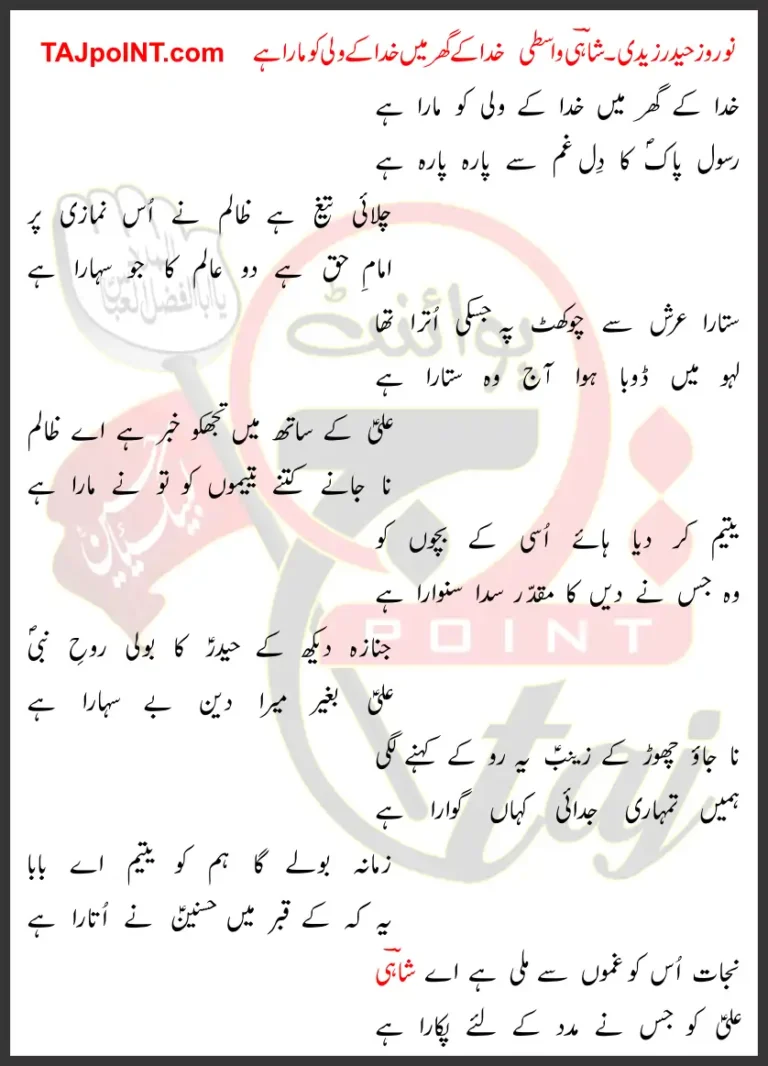 نوروز حیدر زیدی۔شاہیؔ واسطی خدا کے گھر میں خدا کے ولی کو مارا ہے TAJpoINT.com
خدا کے گھر میں خدا کے ولی کو مارا ہے
رسول پاکؐ کا دِل غم سے پارہ پارہ ہے
چلائی تیغ ہے ظالم نے اُس نمازی پر
امامِ حق ہے دو عالم کا جو سہارا ہے
ستارا عرش سے چوکھٹ پہ جسکی اُترا تھا
لہو میں ڈوبا ہوا آج وہ ستارا ہے
علیؑ کے ساتھ میں تجھکو خبر ہے اے ظالم
نا جانے کتنے یتیموں کو تو نے مارا ہے
یتیم کر دیا ہائے اُسی کے بچوں کو
وہ جس نے دیں کا مقدّر سدا سنوارا ہے
جنازہ دیکھ کے حیدرؑ کا بولی روحِ نبیؐ
علیؑ بغیر میرا دین بے سہارا ہے
نا جاؤ چھوڑ کے زینبؑ یہ رو کے کہنے لگی
ہمیں تمہاری جدائی کہاں گوارا ہے
زمانہ بولے گا ہم کو یتیم اے بابا
یہ کہ کے قبر میں حسنینؑ نے اُتارا ہے
نجات اُس کو غموں سے ملی ہے اے شاہیؔ
علیؑ کو جس نے مدد کے لئے پکارا ہے
پوائنٹ
تاج
POINT
taj